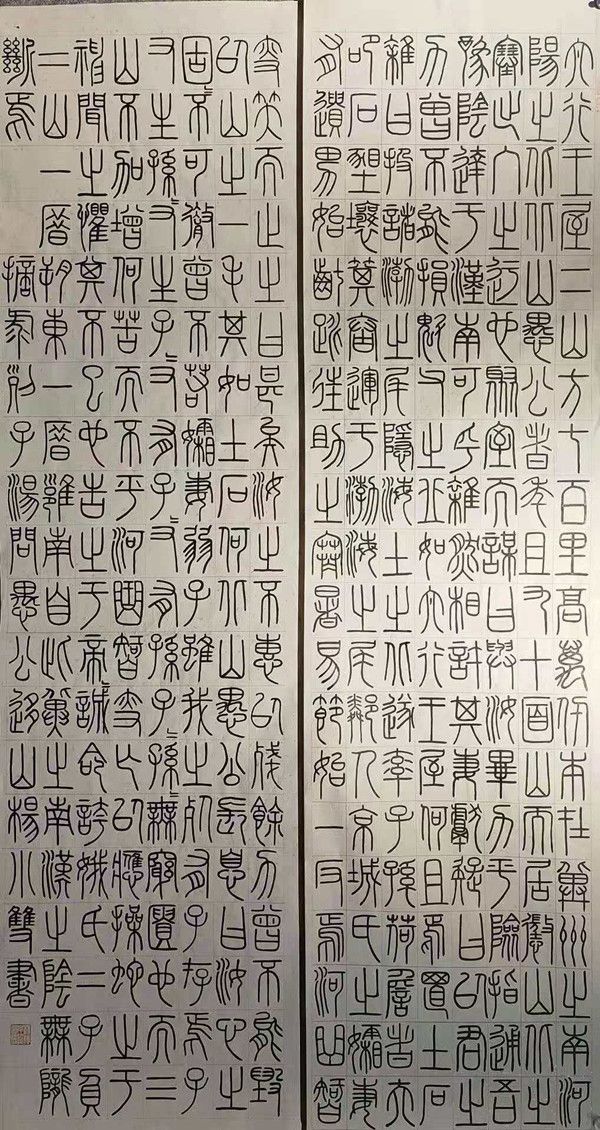 太行王屋二山方七百里高萬仞本在冀州之南河
陽之北北山愚公者年且九十面山而居懲山北之
塞出入之迂也聚室而謀曰與汝畢力平險指通吾
豫陰達于漢南可乎雜然相許其妻獻疑曰以君之
力曾不能損魁父之丘如太行王屋何且焉置土石
雜曰投諸渤之尾隱海土之北遂率子孫荷擔者夫
叩石墾壤箕畚運于渤海之尾鄰人京城氏之孀妻
有遺男始齔跳往助之寒暑易節始一反焉河曲智
叟笑而止之曰甚矣汝之不惠以殘餘力曾不能毀
以山之一毛其如土石何北山愚公長息曰汝心之
固不可徹曾不若孀妻弱子雖我之死有子存焉子
又生孫〻又生子〻又有子〻又有孫子〻孫〻無窮匱也而二
山不加增何苦而不平河曲智叟亡以應操蛇之于
神聞之懼其不已也告之于帝誠命誇娥氏二子負
二山一厝朔東一厝雍南自此冀之南漢之陰無隴
斷焉 摘列子湯問愚公移山楊小雙書